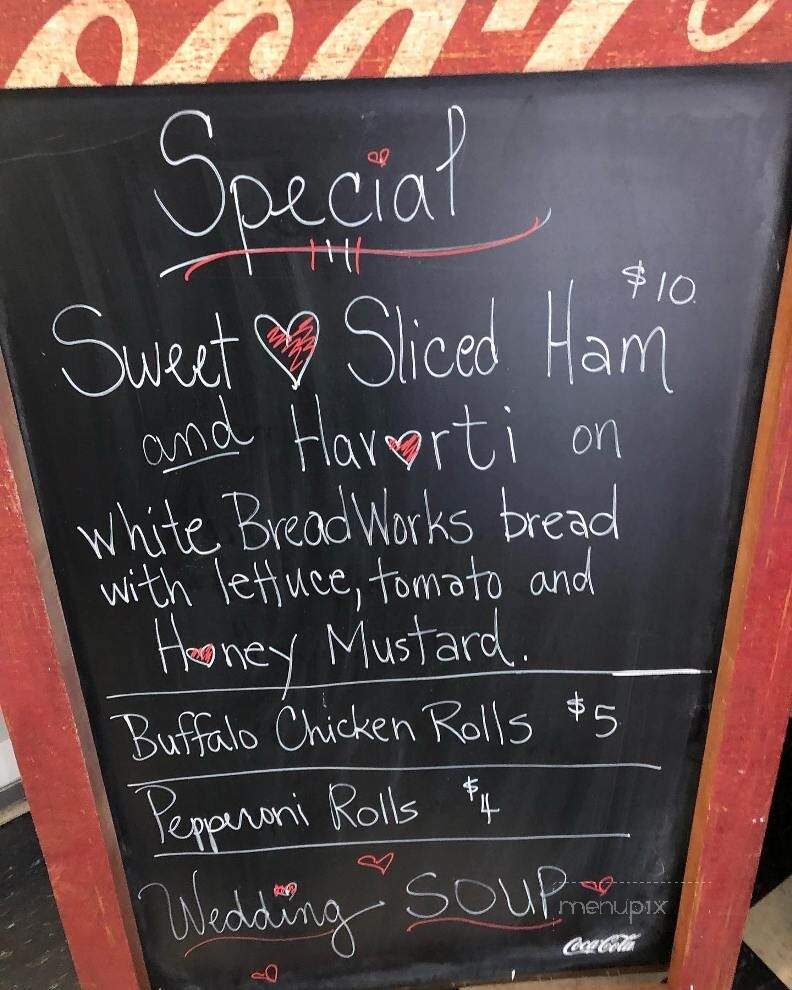 Special
$10
Sweet Sliced Ham
and Havorti on
white BreadWorks bread
with lettuce, tomato and
Honey Mustard.
Buffalo Chicken Rolls $5
Pepperoni Rolls $4
Wedding SOUP
menupix
Coca-Cola